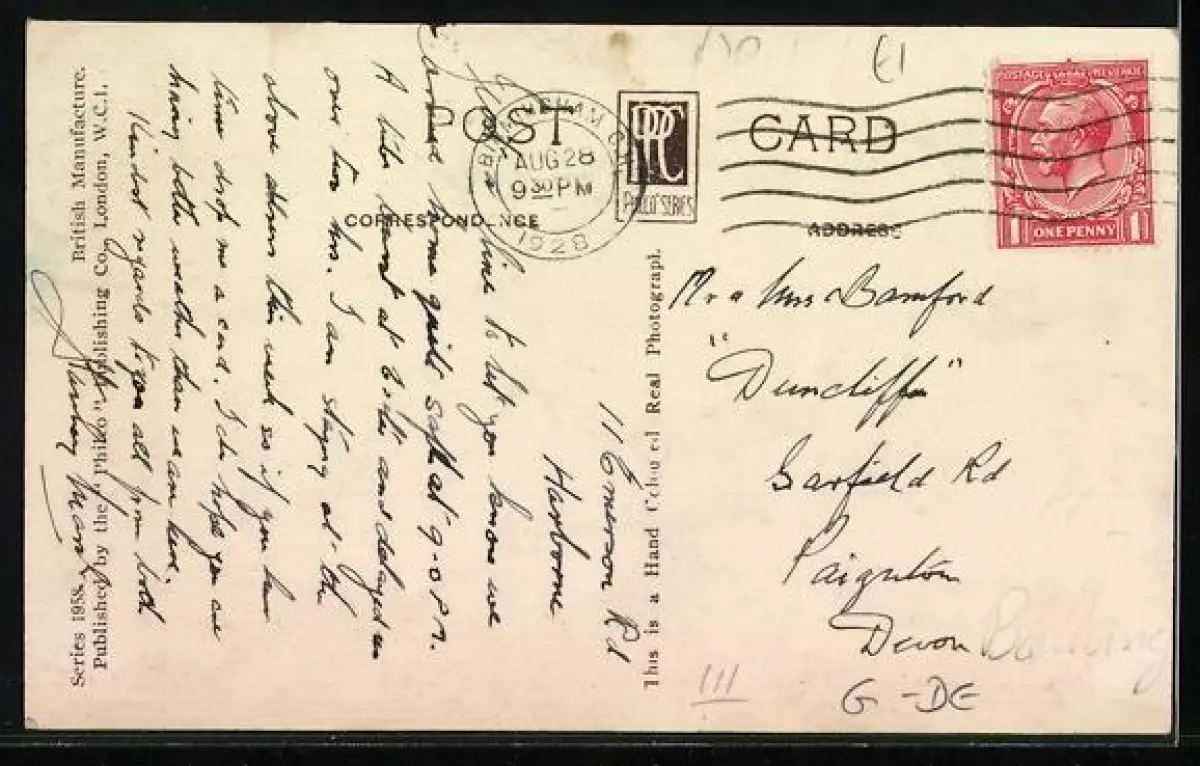 POST CARD
CORRESPONDENCE
ADDRESS
BIRMINGHAM
AUG 28
9 30 PM
1928
RPPC
PHILCO SERIES
POSTAGE REVENUE
1 ONE PENNY 1
116 Emerson Rd
Harborne
line to let you know we
arrived home quite safe at 9-0 P.M.
A like at and delayed us
over two hrs. I am staying at the
above address this week so if you have
time drop me a card. I do hope you are
having better weather than we are here.
Kindest regards to you all from both
Stanley
Mr & Mrs Bamford
"Duncliffe"
Garfield Rd
Paignton
Devon
G-DE
III
This is a Hand Coloured Real Photograph.
Series 1958. British Manufacture.
Published by the "Philco" Publishing Co., London, W.C.1.